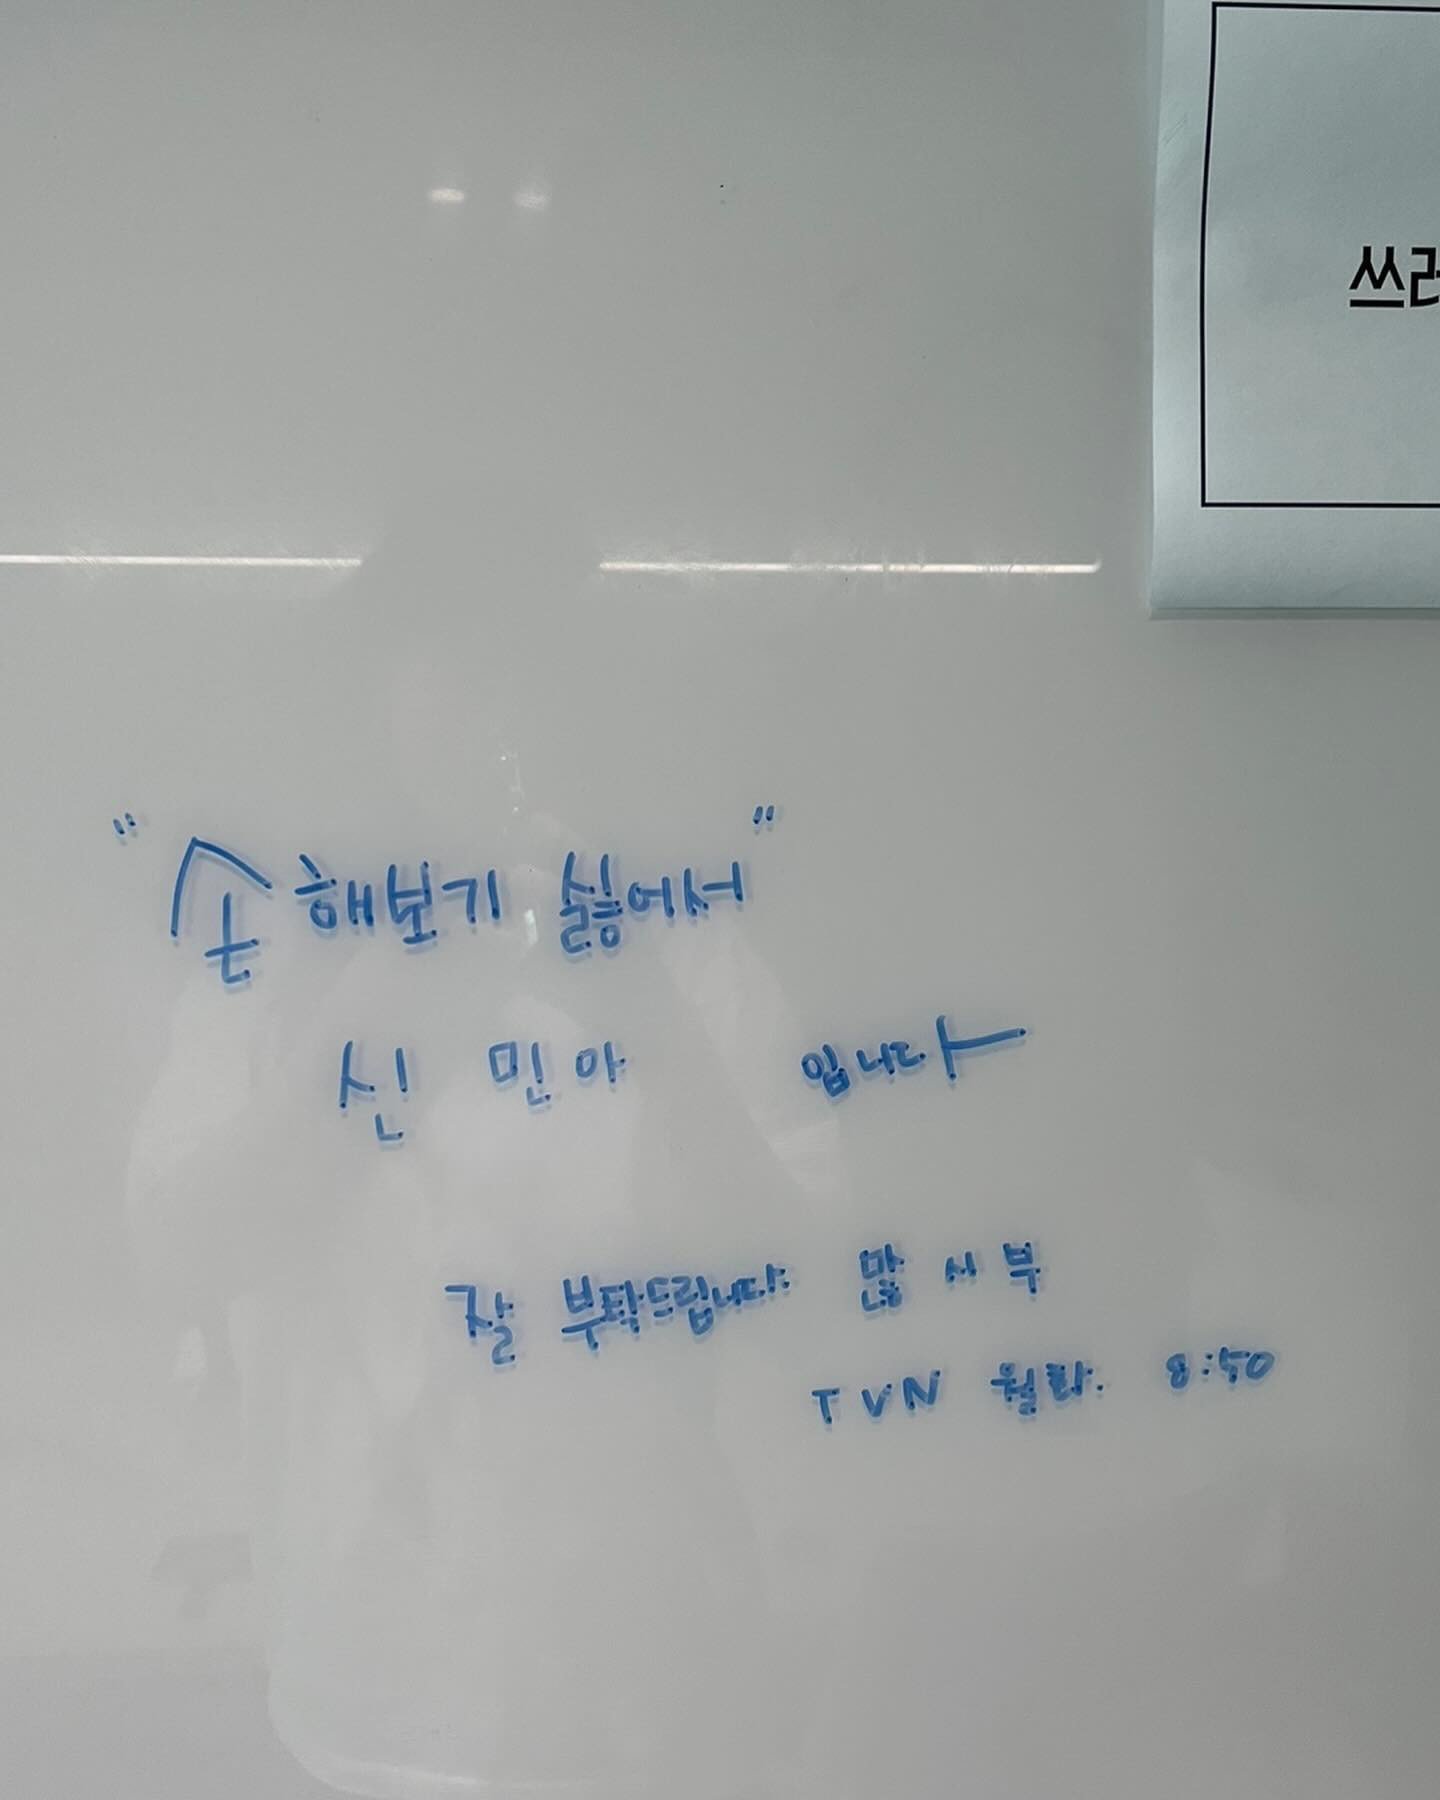 쓰레
"손해보기 싫어서"
신 민 아 입니다
잘 부탁드립니다. 많 시 부
TVN 월화. 8:50